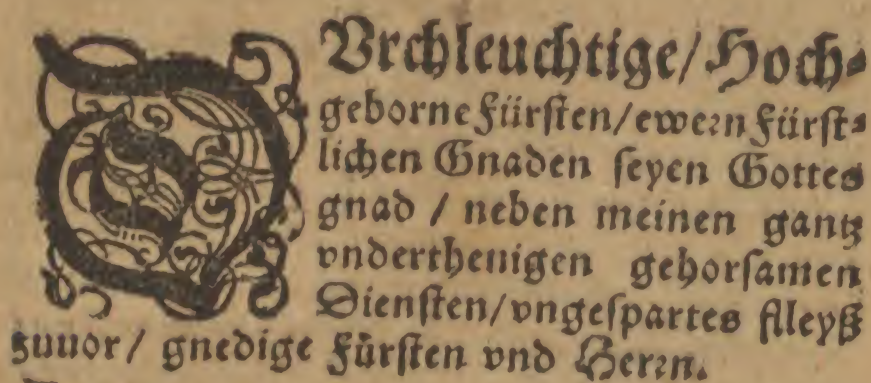 DVrchleuchtige/ Hoch⸗
geborne Fürsten/ ewern Fürst⸗
lichen Gnaden seyen Gottes
gnad / neben meinen gantz
vnderthenigen gehorsamen
Diensten/ vngespartes fleyß
zuuor/ gnedige Fürsten vnd Herrn.